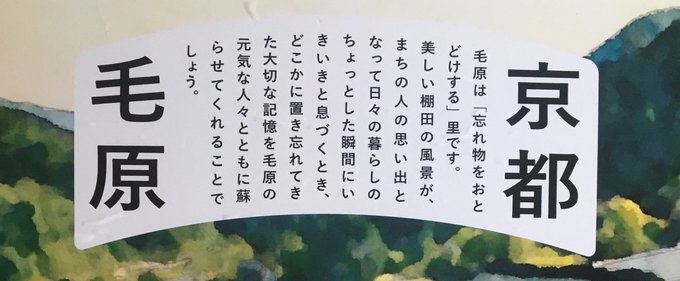 京都
毛原は「忘れ物をおと
どけする」里です。
美しい棚田の風景が、
まちの人の思い出と
なって日々の暮らしの
ちょっとした瞬間にい
きいきと息づくとき、
どこかに置き忘れてき
た大切な記憶を毛原の
元気な人々とともに蘇
らせてくれることで
しょう。
毛原